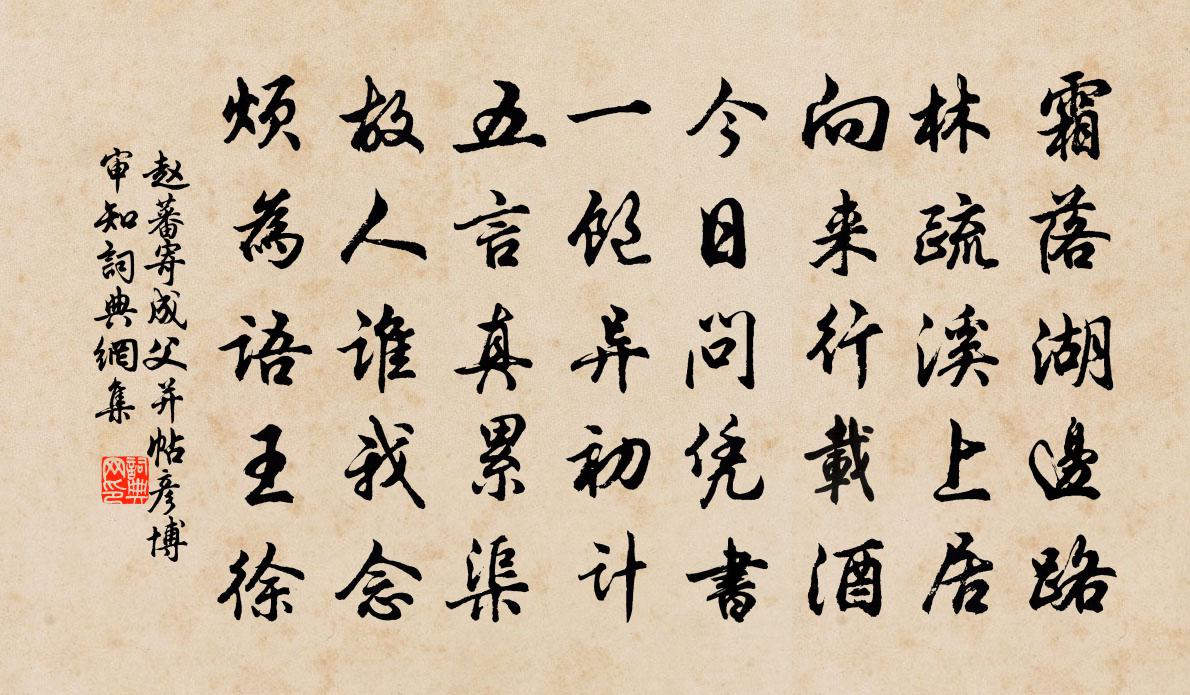 霜落湖邊路
林疏溪上居
向来行載酒
今日问凭書
一飽异初计
五言真累渠
故人谁我念
烦為語王徐
赵蕃寄成父并帖彦博
审知詞典網集
詞典网印